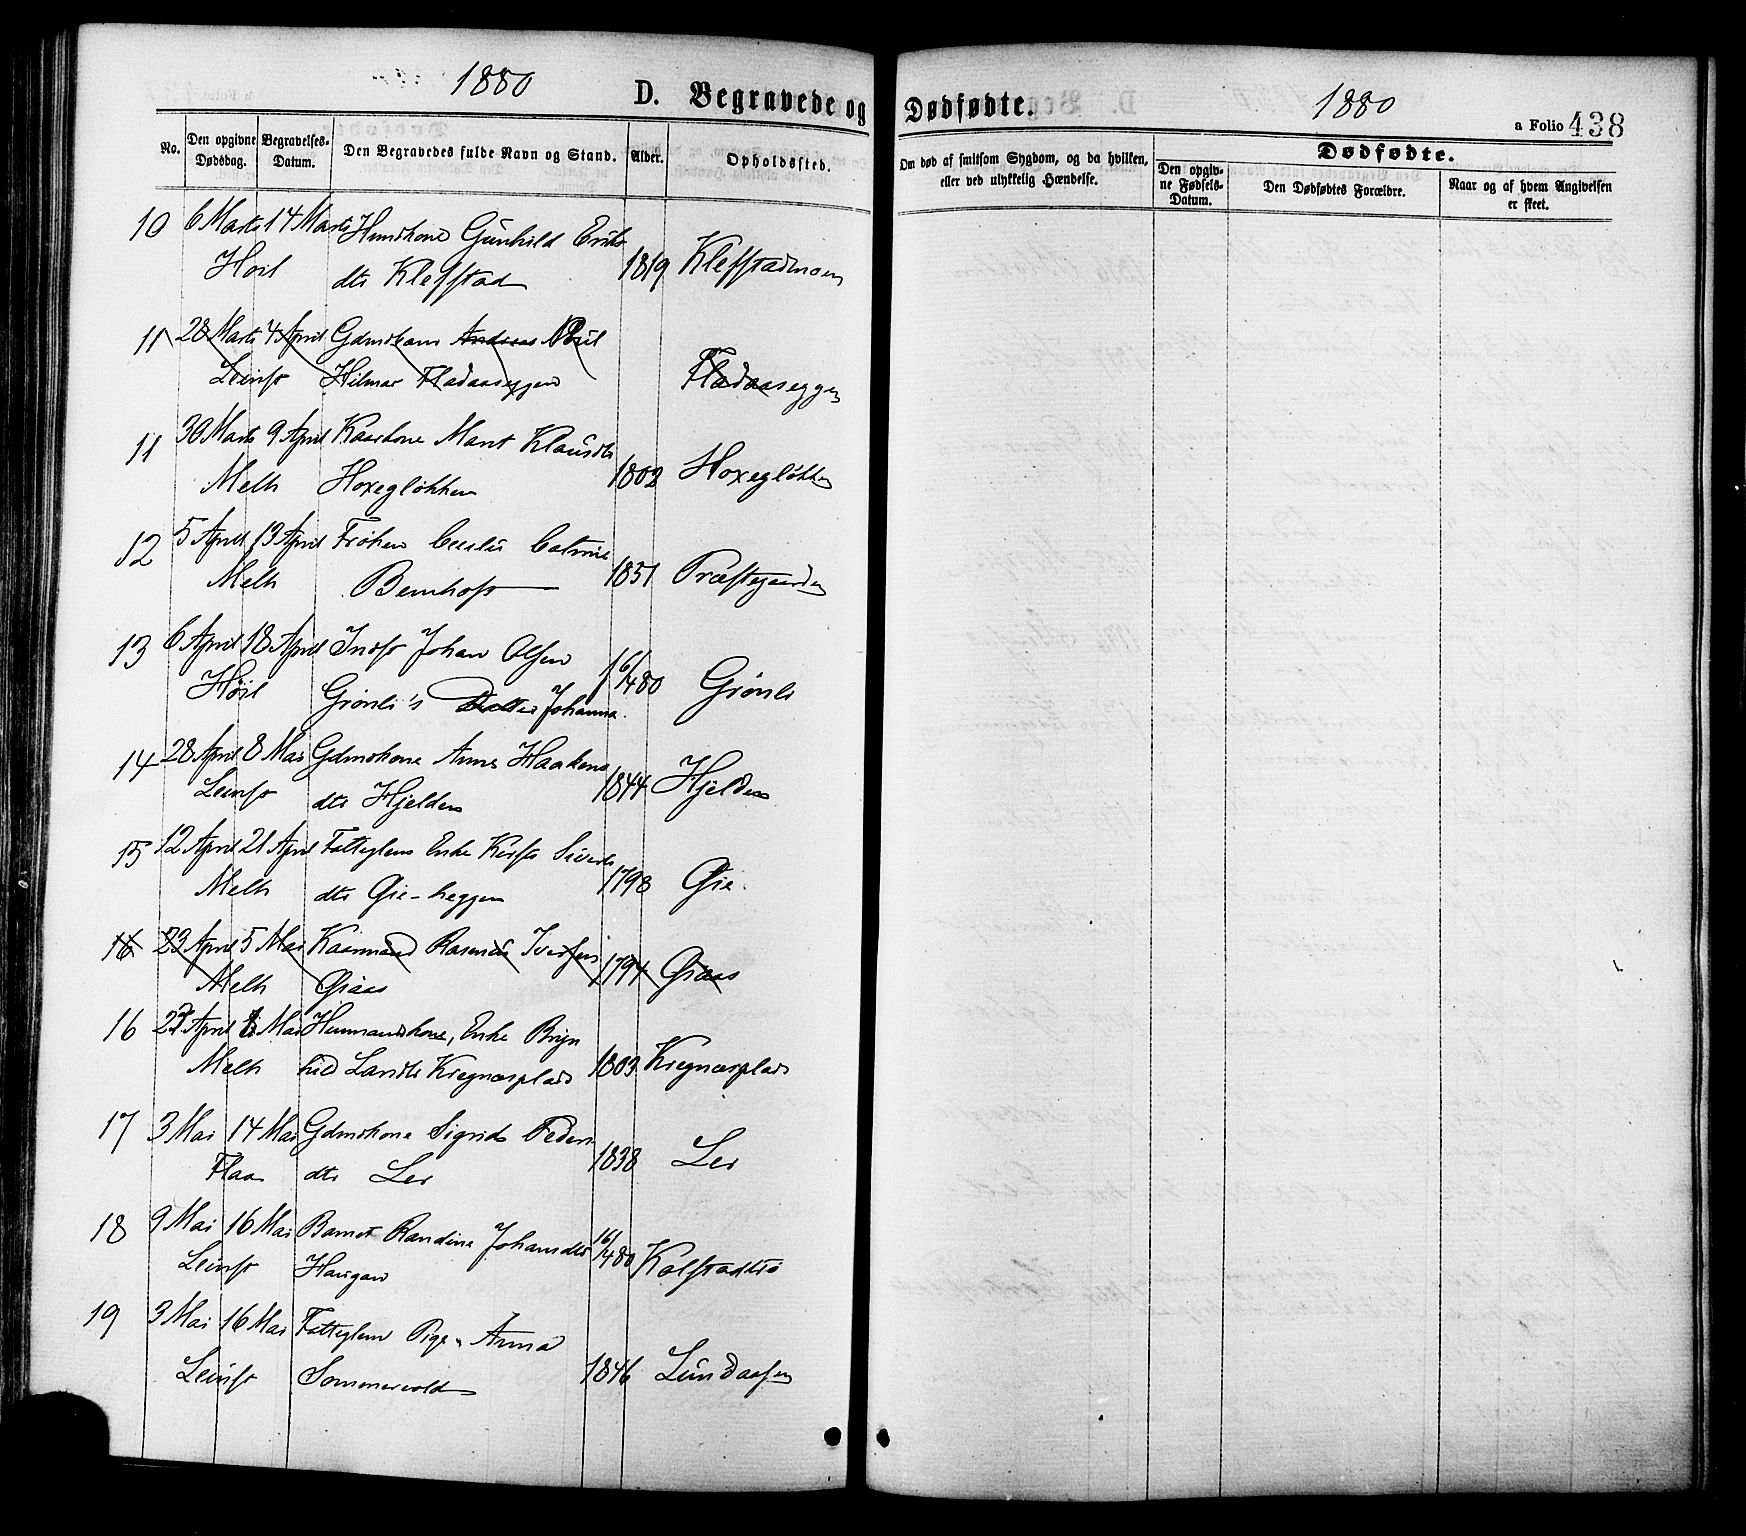 1880
D. Begravede og
Dødfødte.
1880
a Folio 438
No.
Den opgivne Dødsdag.
Begravelses-Datum.
Den Begravedes fulde Navn og Stand.
Alder.
Opholdssted.
Om død af smitsom Sygdom, og da hvilken,
eller ved ulykkelig Hændelse.
Dødfødte.
Den opgiv-
ne Fødsels-
Datum.
Den Dødfødtes Forældre.
Naar og af hvem Angivelsen
er skeet.
10 6 Marts 14 Marts Huuskone Gunhild Eriks
Høil dtr Kleffstad 1819 Kleffstadmoen
11 28 Marts 4 April Gdmskone Andreas
Leinst Hilmar Fladaaseggen Fladaaseggen
11 30 Marts 9 April Kaarkone Marit Klausdtr
Melh Hoxegløkken 1802 Hoxegløkken
12 5 April 13 April Frøken
Melh 1851 Præstegaarden
13 6 April 18 April Indst Johan Olsen
Høil Grønli's Datter Johanna 1 6/480 Grønli
14 28 April 8 Mai Gdmskone Anne Haakens
Leinst dtr Hjelden 1844 Hjelden
15 12 April 21 April Fattiglem Enke Sivertsdtr
Melh dtr Øie-heggen 1798 Øie
16 23 April 5 Mai Kaarmand Rasmus Iversen
Melh Graas 1794 Graas
16 27 April 8 Mai Huusmandskone, Enke Bryn
Melh hild Larsdtr Kregnesplads 1803 Kregnesplads
17 3 Mai 14 Mai Gdmskone Sigrid Peders
Flaa dtr Ler 1838 Ler
18 9 Mai 16 Mai Barnet Randine Johansdtr
Leinst Haugan 16/480 Kolstadtrø
19 3 Mai 16 Mai Fattiglem Pige Anna
Leinst Sommervold 1846 Lundaasen